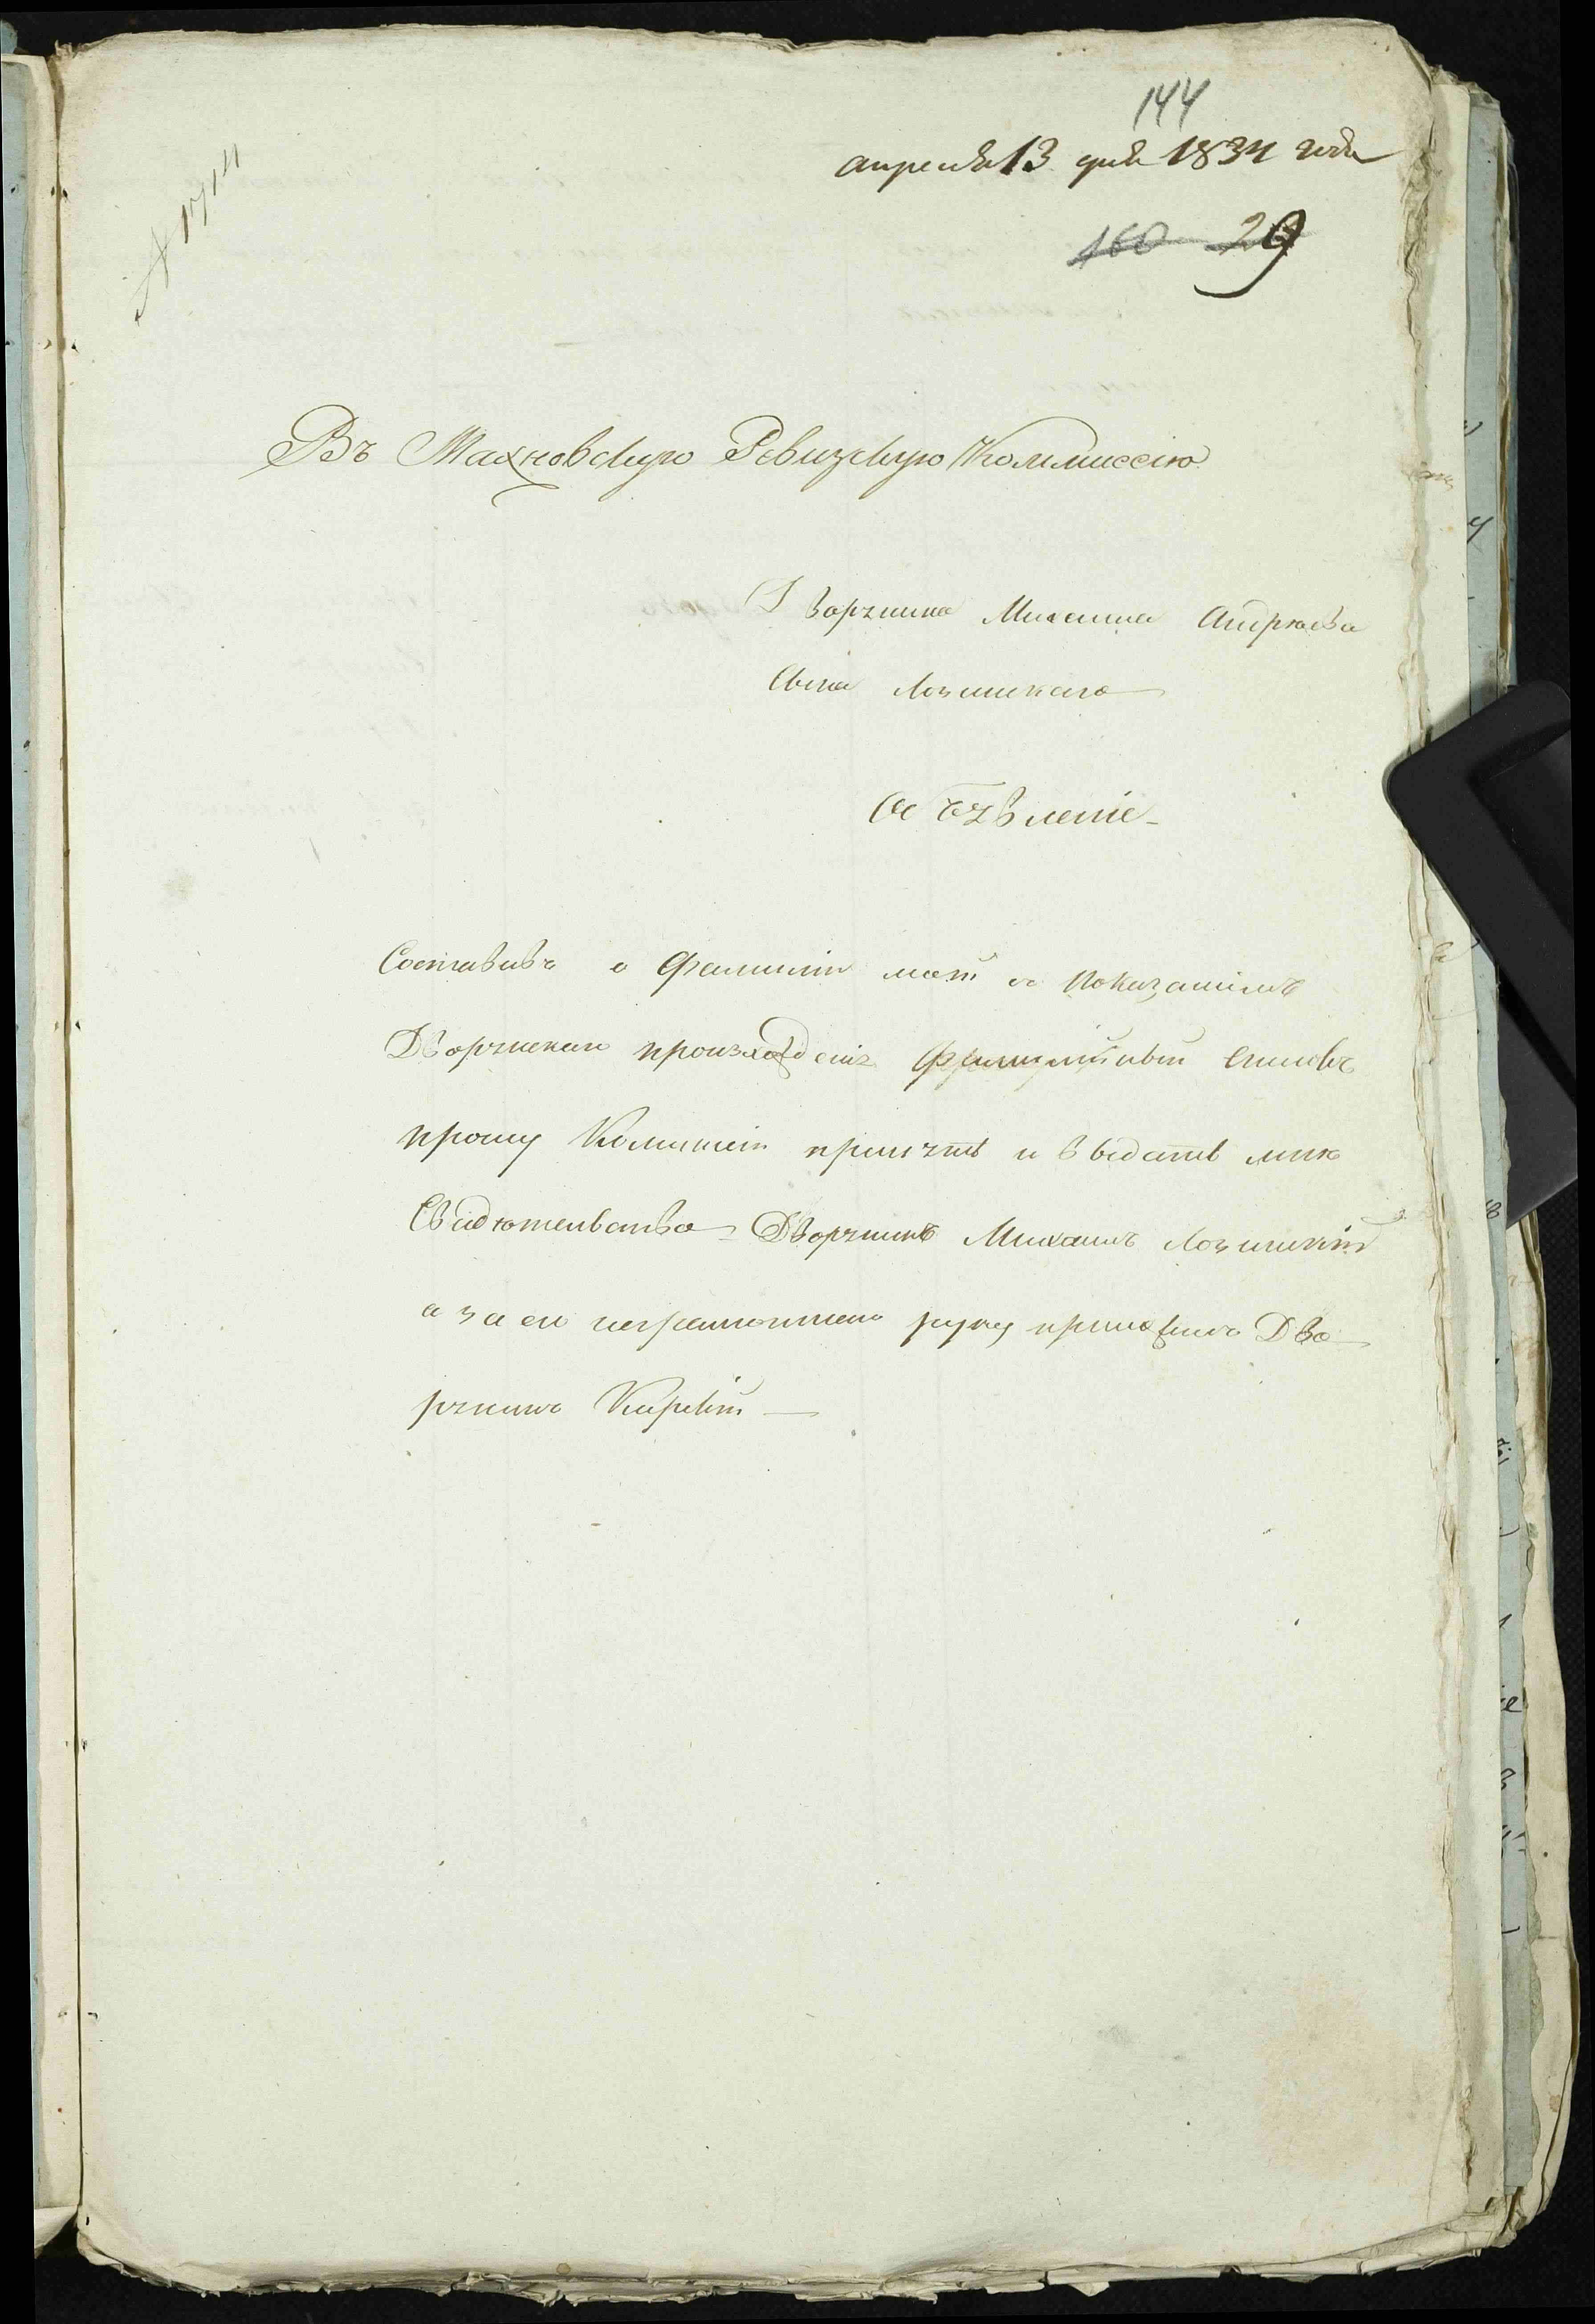 144
апреля 13 дня 1834 года
160 29
№ 1714
Въ Махновскую Ревизскую Коммиссію
Дворянина Михаила Андреева
Сына Лозинскаго
Объявленіе
Составивъ о Фамиліи моей съ показаніемъ
Дворянскаго произхожденія Фамилійный списокъ
прошу Комисію принять и выдать мнѣ
Свидѣтельство Дворянинъ Михаилъ Лозинскій
а за его неграмотнаго руку приложилъ Дво
рянинъ